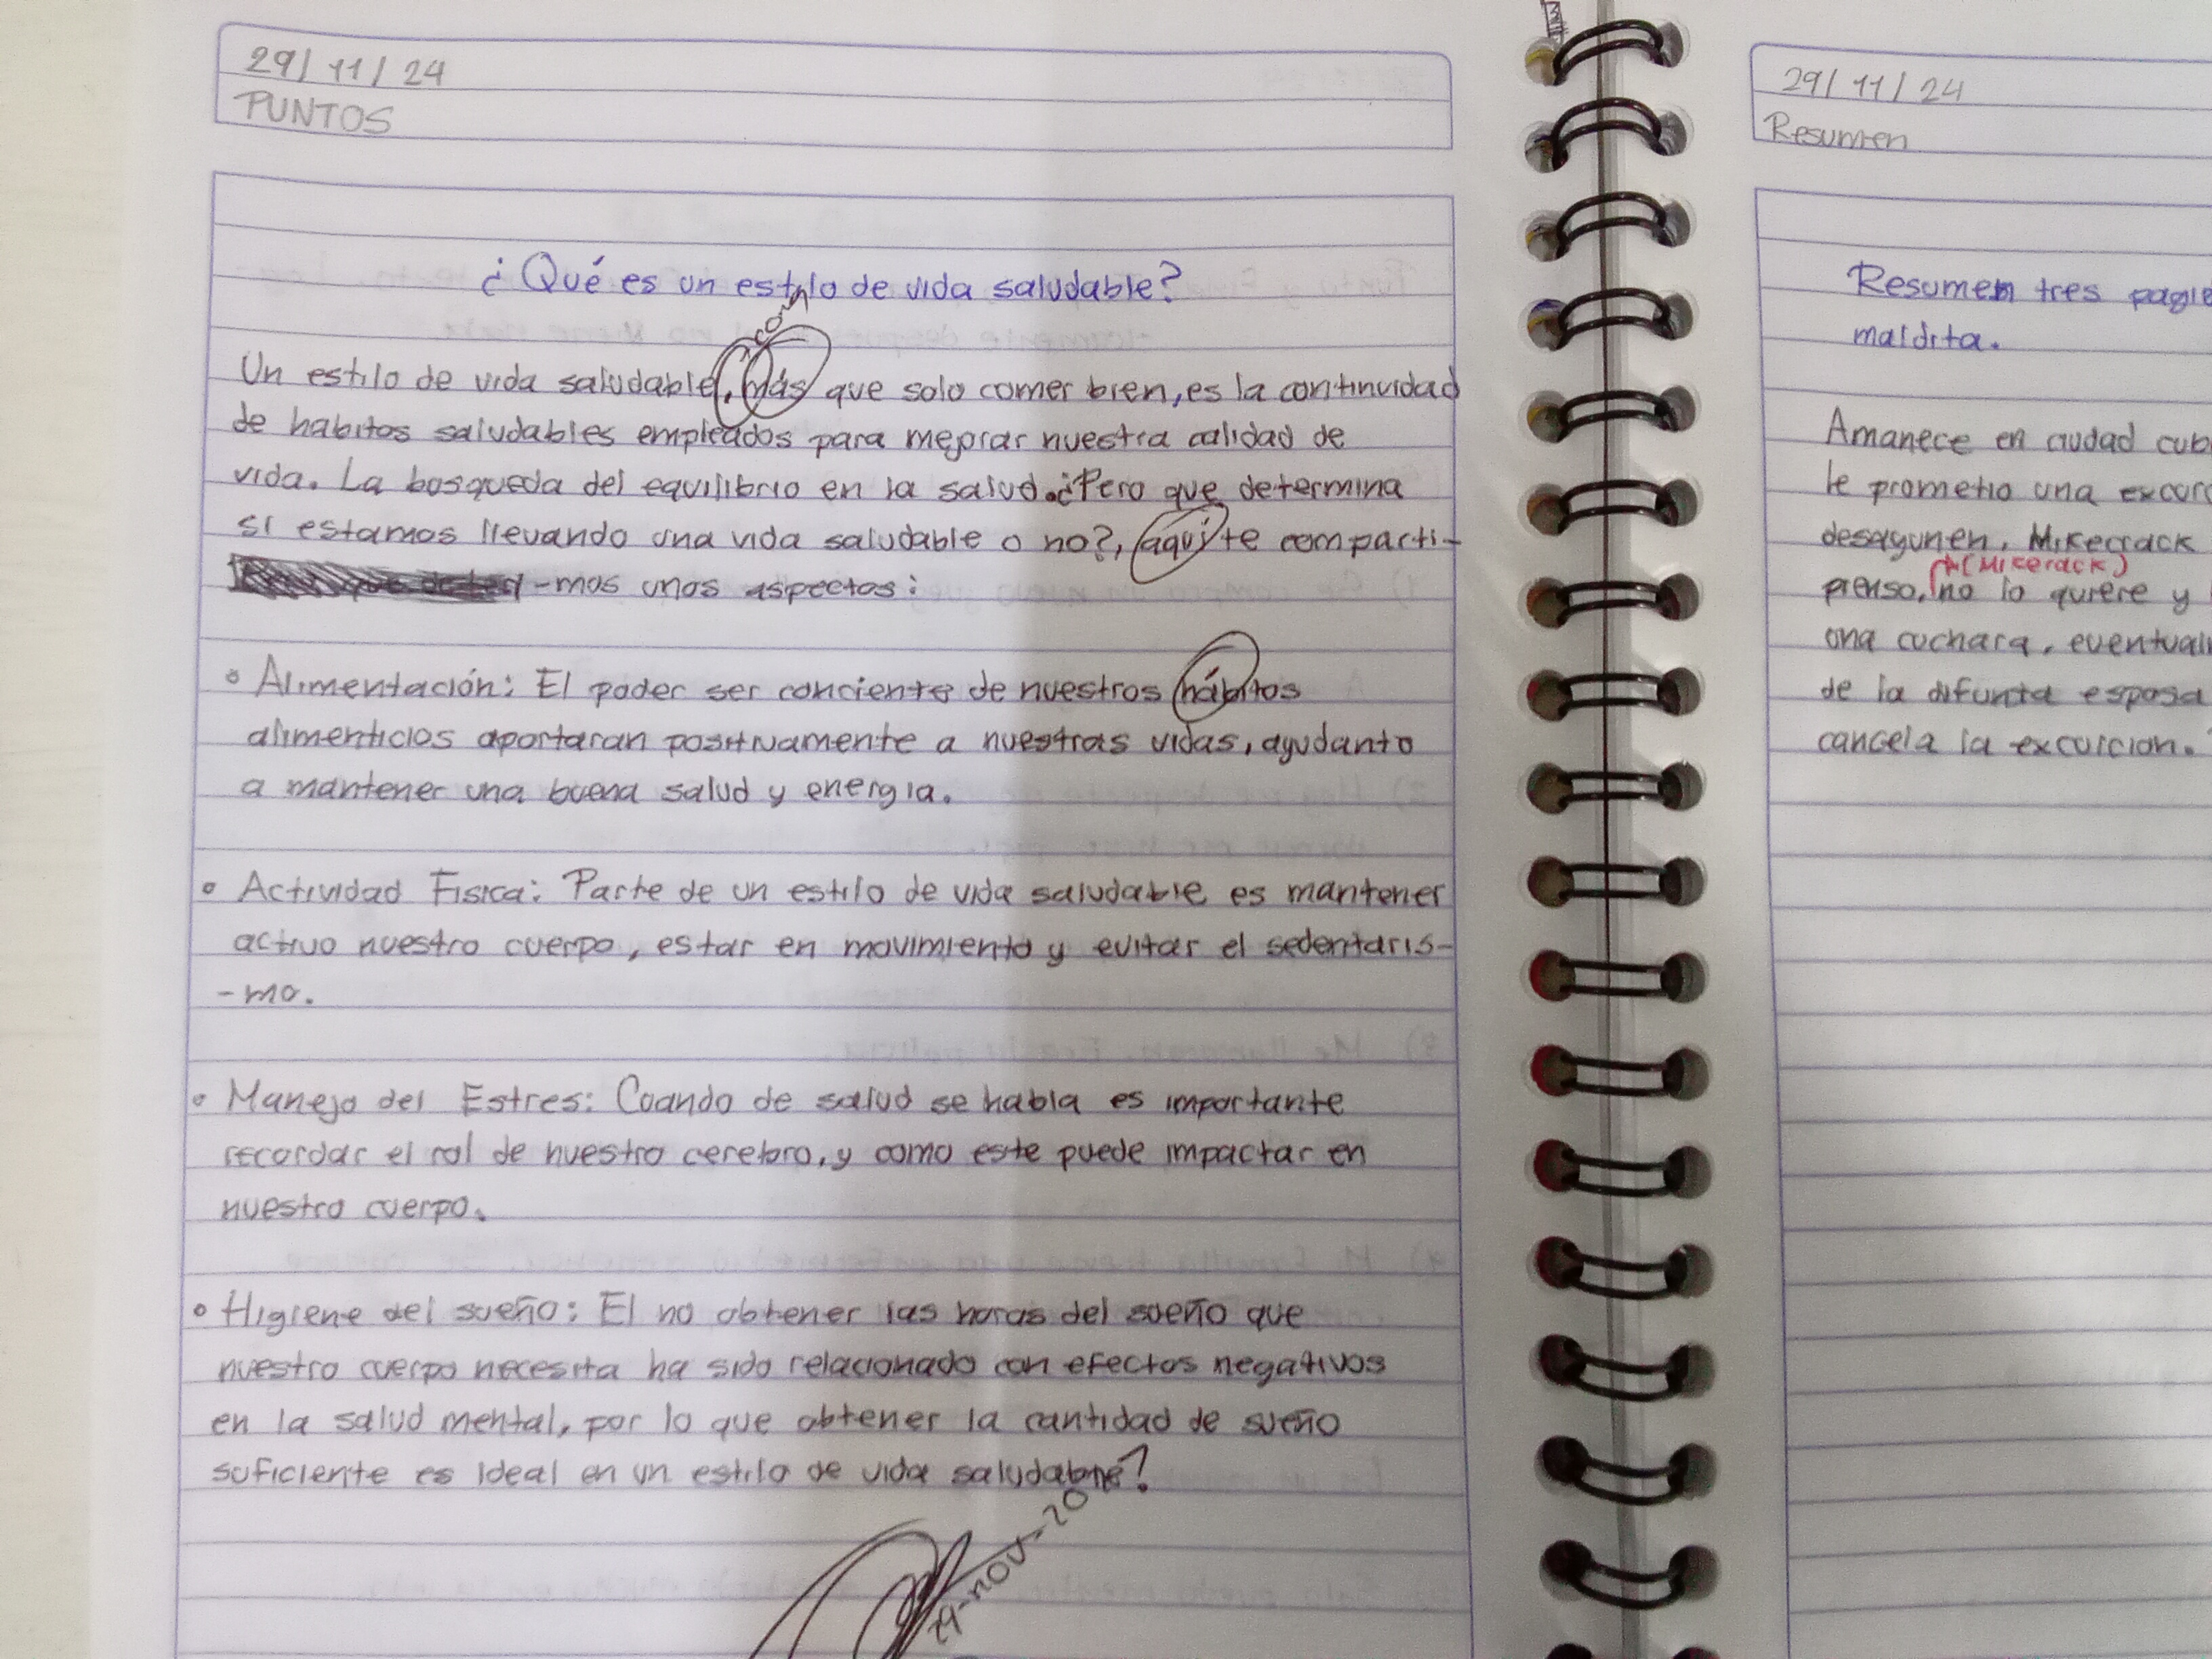 29/11/24
PUNTOS
¿Qué es un estilo de vida saludable?
con
Un estilo de vida saludable, más que solo comer bien, es la continuidad
de habitos saludables empleados para mejorar nuestra calidad de
vida. La bosqueda del equilibrio en la salud. ¿Pero que determina
si estamos llevando una vida saludable o no?, aquí te comparti-
-mos unos aspectos:
• Alimentación: El poder ser conciente de nuestros hábitos
alimenticios aportaran positivamente a nuestras vidas, ayudanto
a mantener una buena salud y energia.
• Actividad Fisica: Parte de un estilo de vida saludable es mantener
activo nuestro cuerpo, estar en movimiento y evitar el sedentaris-
-mo.
• Manejo del Estres: Cuando de salud se habla es importante
recordar el rol de nuestro cerebro, y como este puede impactar en
nuestro cuerpo.
• Higiene del sueño: El no obtener las horas del sueño que
nuestro cuerpo necesita ha sido relacionado con efectos negativos
en la salud mental, por lo que obtener la cantidad de sueño
suficiente es ideal en un estilo de vida saludable!
29/11/24
Resumen
Resumen tres
maldita.
Amanece en ciudad
le prometio una
desayunen, Mikecrack
(Mikerack)
pienso, no lo quiere y
una cuchara,
de la difunta esposa
cancela la excurcion.